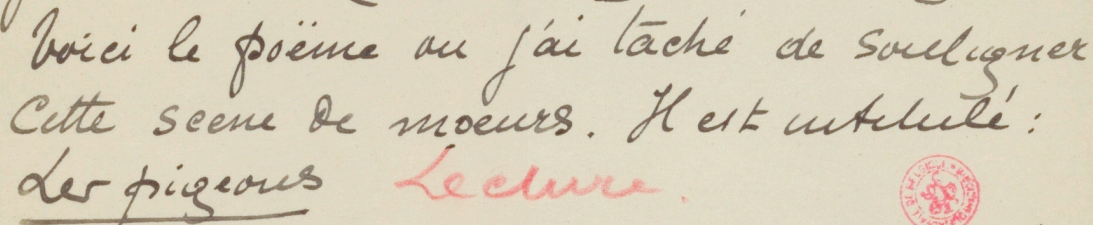 Voici le poëme ou j'ai tâché de souligner
Cette scene de moeurs. Il est intitulé :
Les pigeons Lecture.